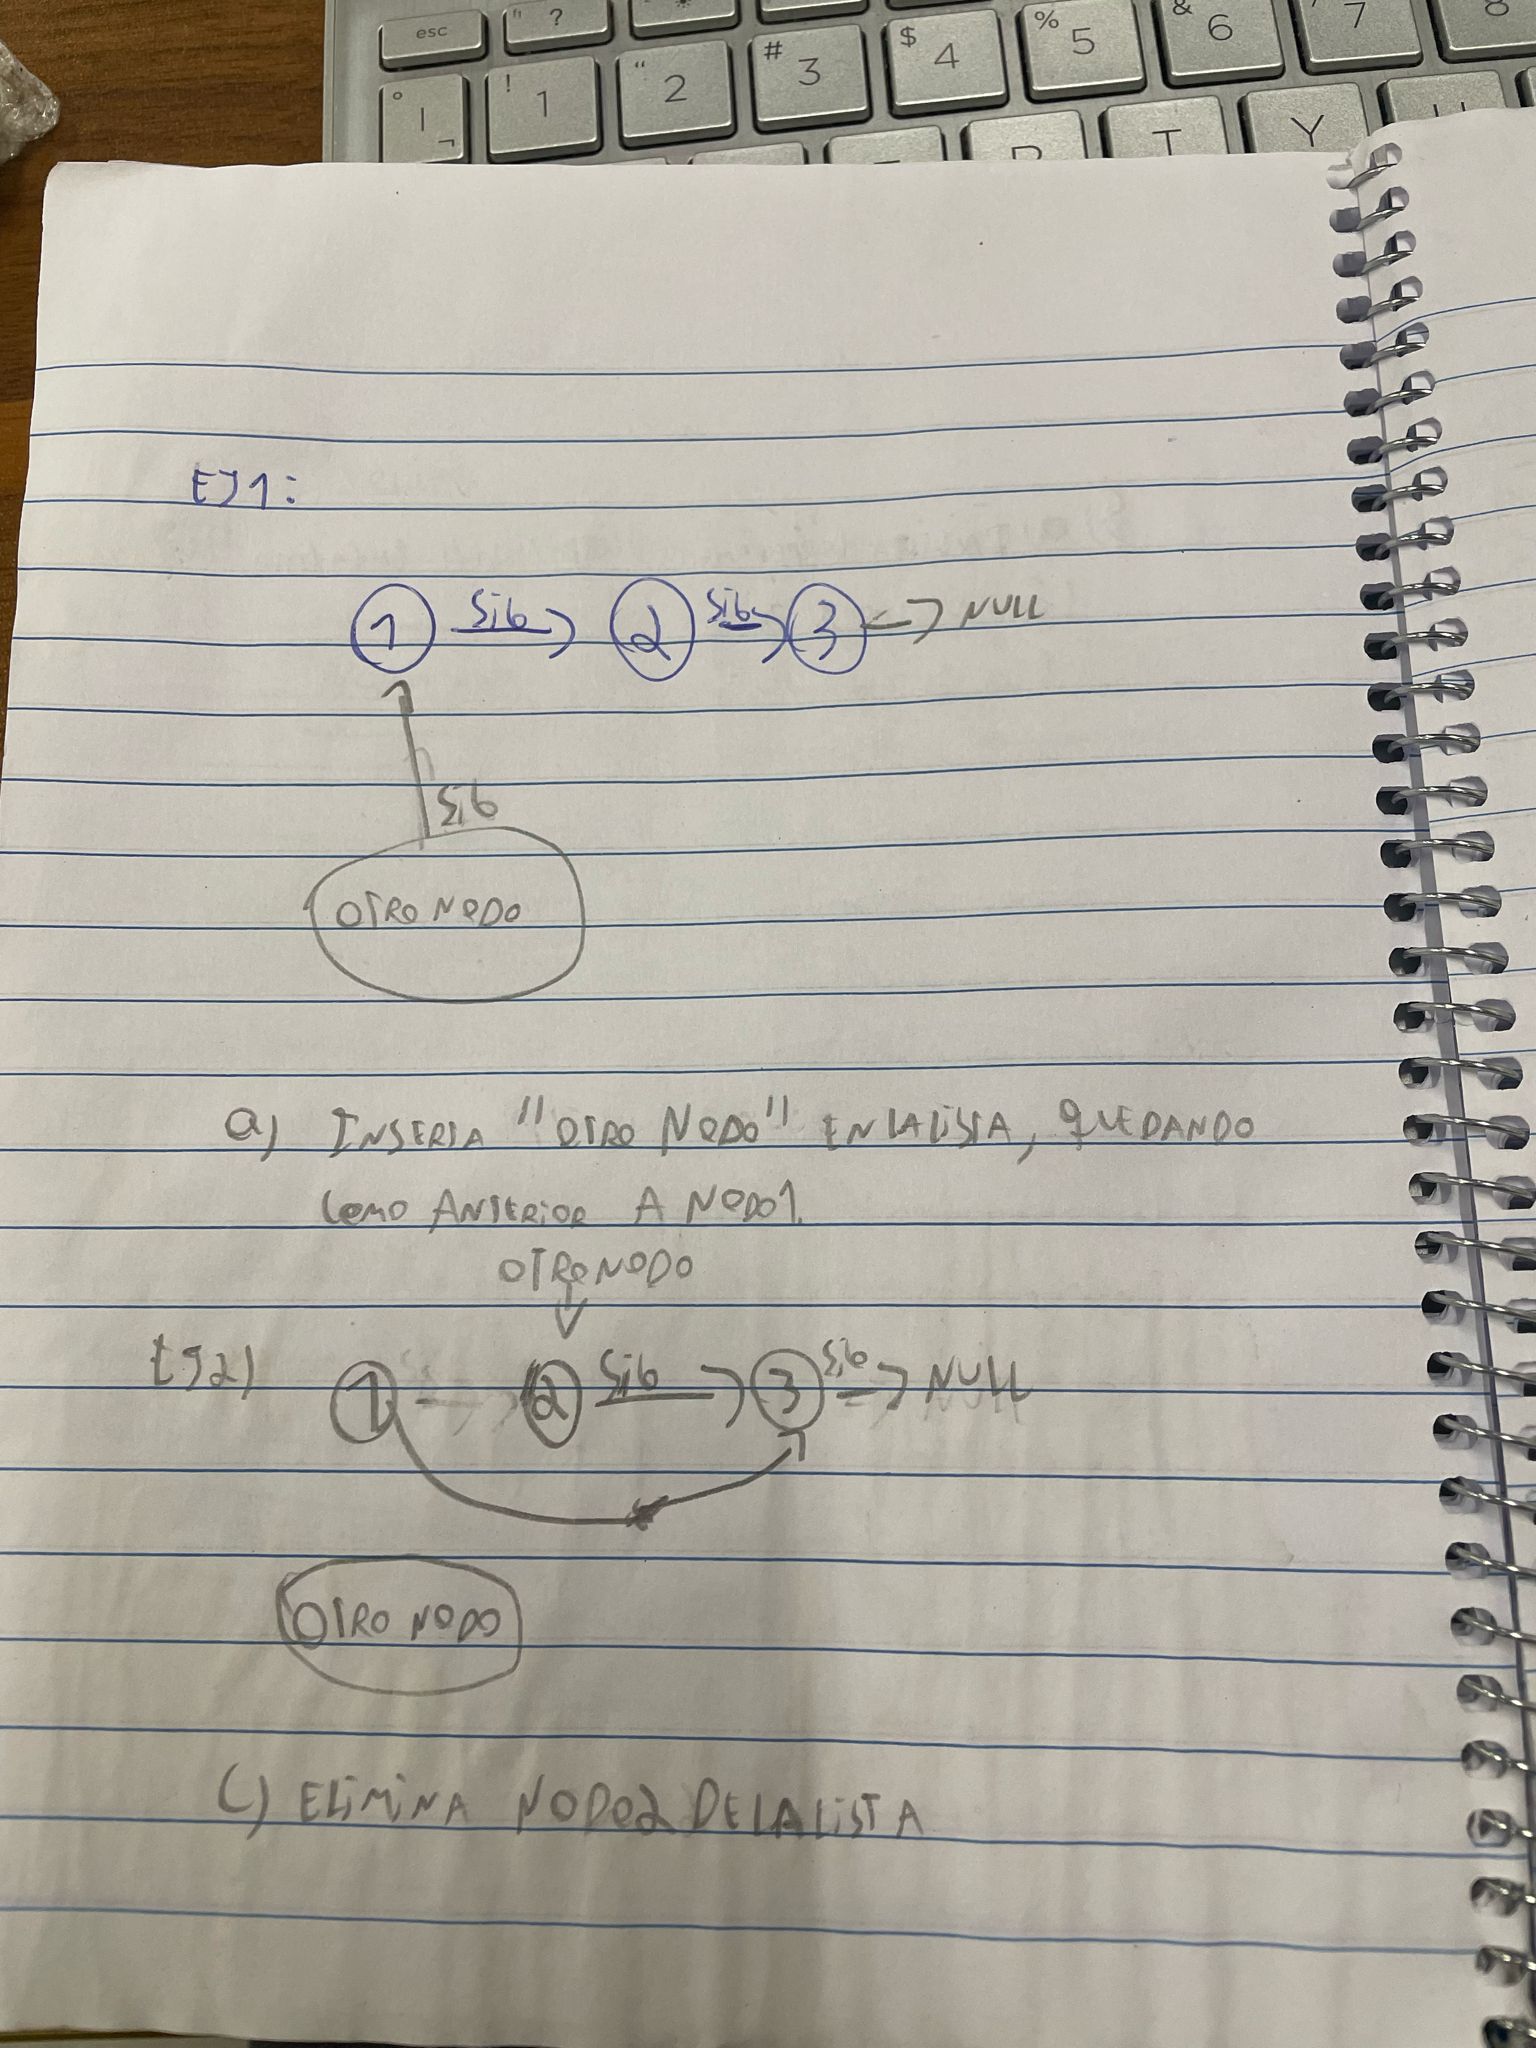 esc
" ?
° | ¬
! 1
" 2
# 3
$ 4
% 5
& 6
7
8
T
Y
EJ1:
1 Sig 2 Sig 3 NULL
Sig
OTRO NODO
a) INSERTA "OTRO NODO" EN LA LISTA, QUEDANDO
COMO ANTERIOR A NODO1.
OTRO NODO
EJ2) 1 2 Sig 3 Sig NULL
OTRO NODO
C) ELIMINA NODO2 DE LA LISTA